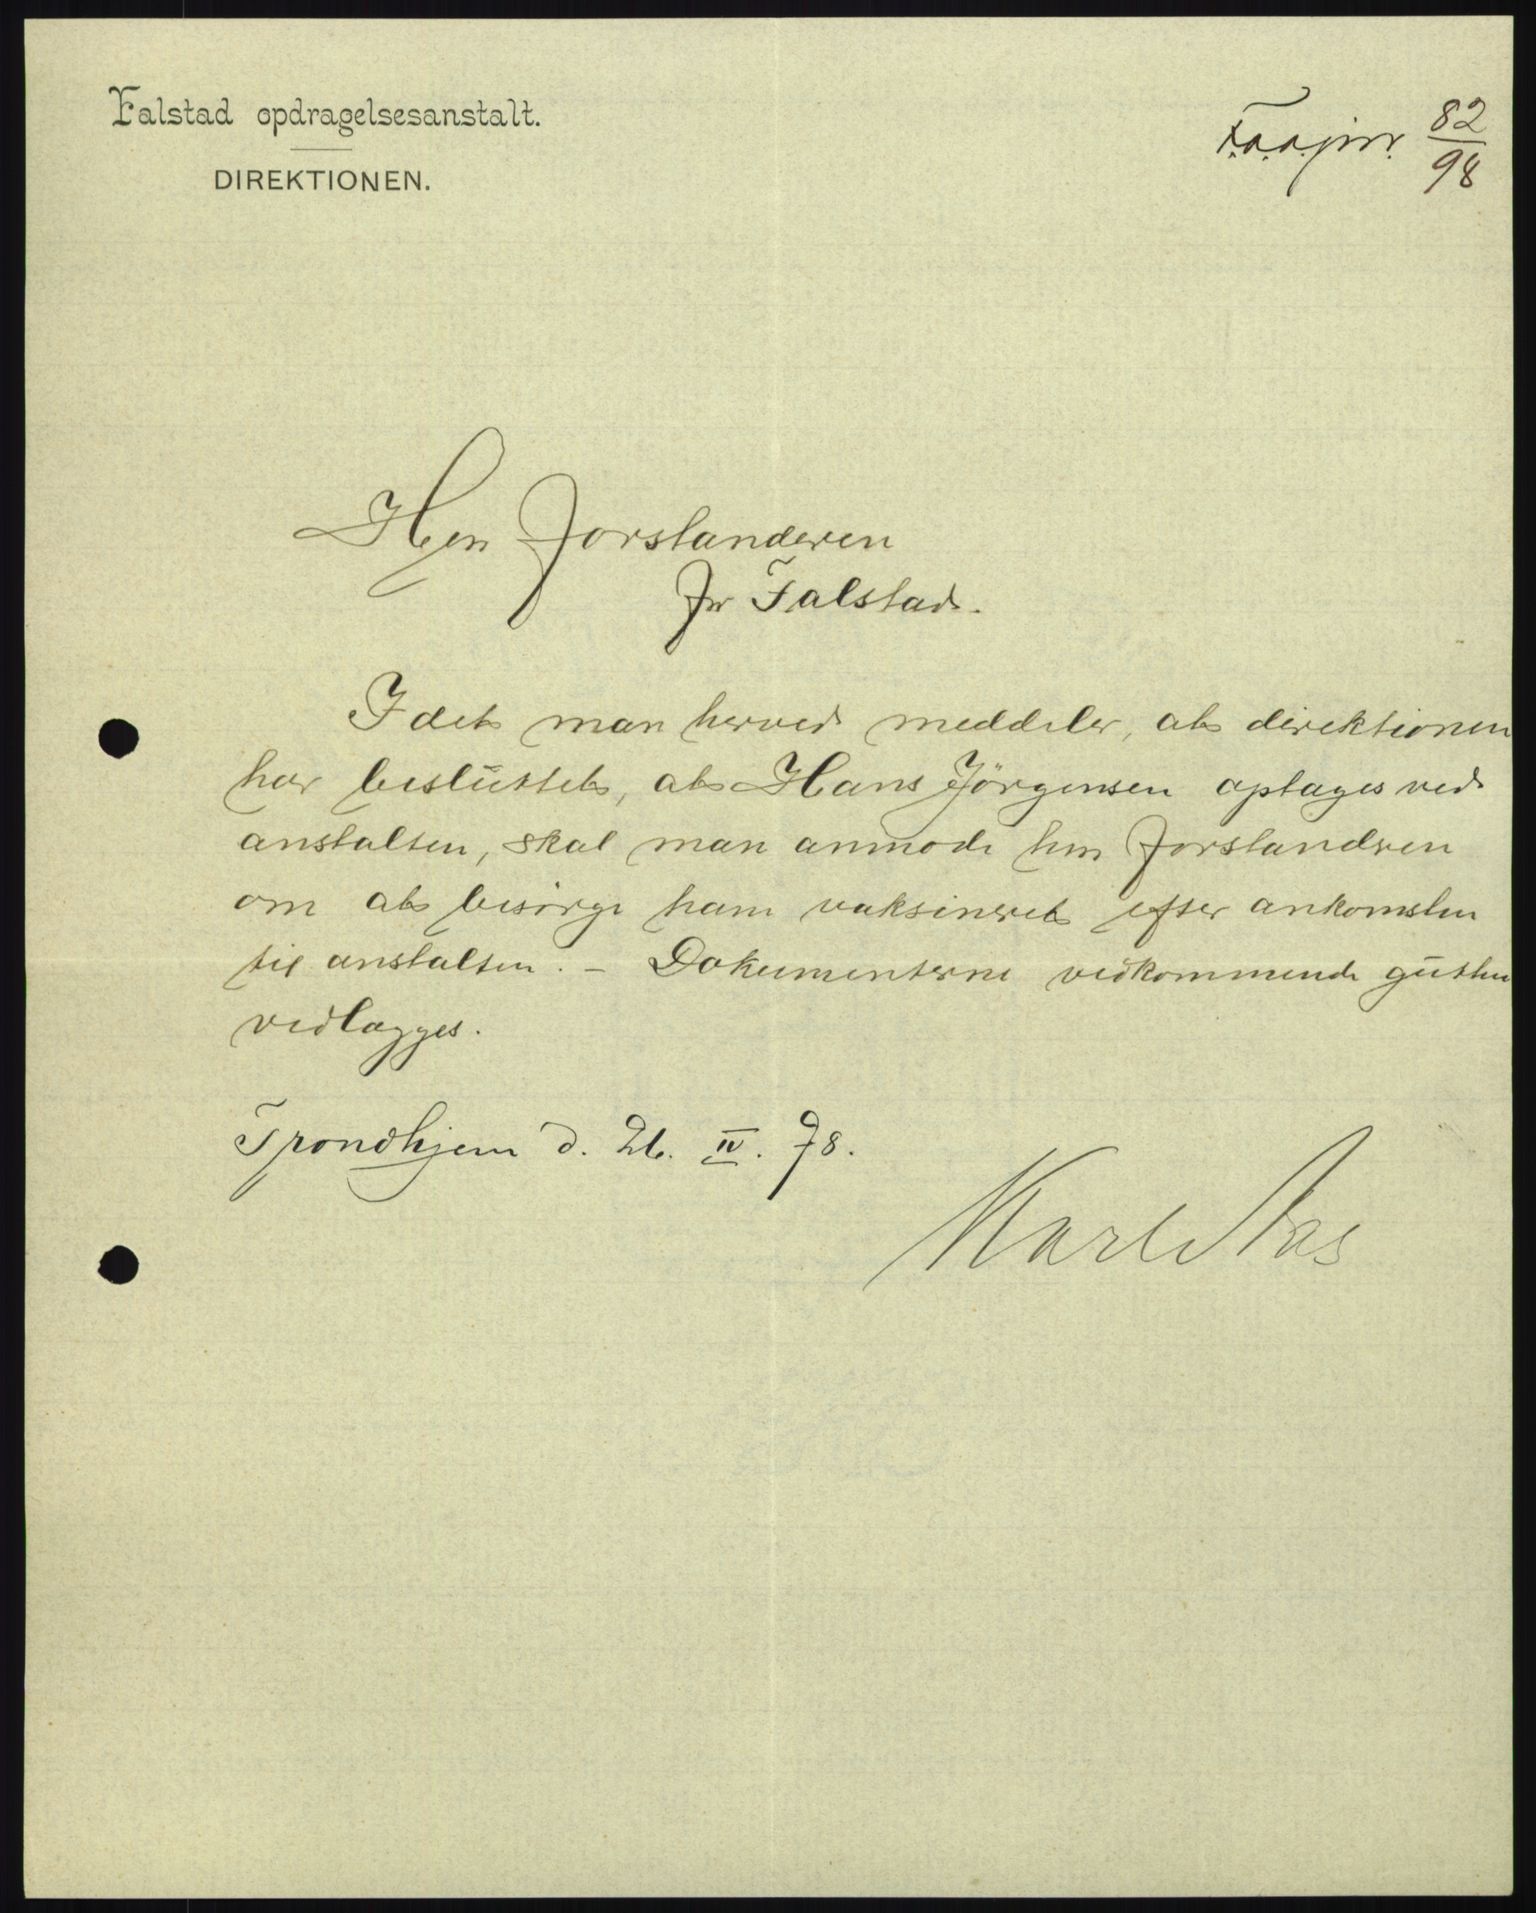 Falstad opdragelsesanstalt.
DIREKTIONEN.
F.a.a.jnr. 82/98
Herr Forstanderen
for Falstad.
Idet man herved meddeler, at direktionen
har besluttet, at Hans Jörgensen optages ved
anstalten, skal man anmode hrr Forstandren
om at besörge ham vaksineret efter ankomsten
til anstalten. - Dokumenterne vedkommende gutten
vedlægges.
Trondhjem d. 26. IV. 98.
Karl